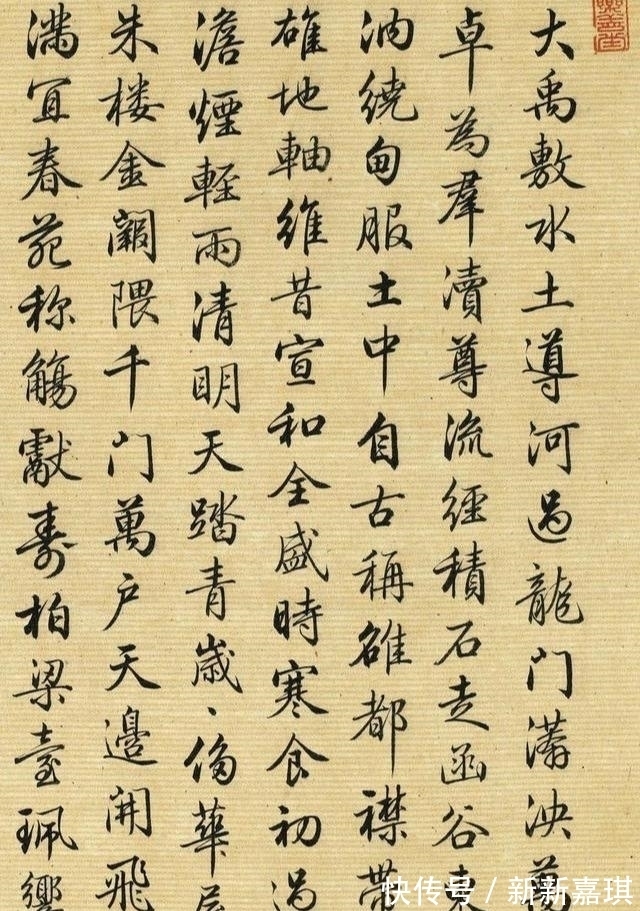 大禹敷水土導河過龍門漭泱萬
卓為羣瀆尊流經積石走函谷東
汭繞甸服土中自古稱雄都襟帶
雄地軸維昔宣和全盛時寒食初過
澹煙輕雨清明天踏青歲、侈華
朱楼金闕隈千門萬戶天邊開飛
滿宜春苑称觴獻壽柏梁臺珮響
快传号/新新嘉琪